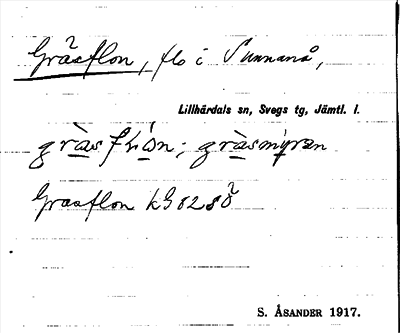 Gräsflon, flo i Sunnanå,
Lillhärdals sn, Svegs tg, Jämtl. l.
gräsmýran
Grasflon kG 8280
S. ÅSANDER 1917.